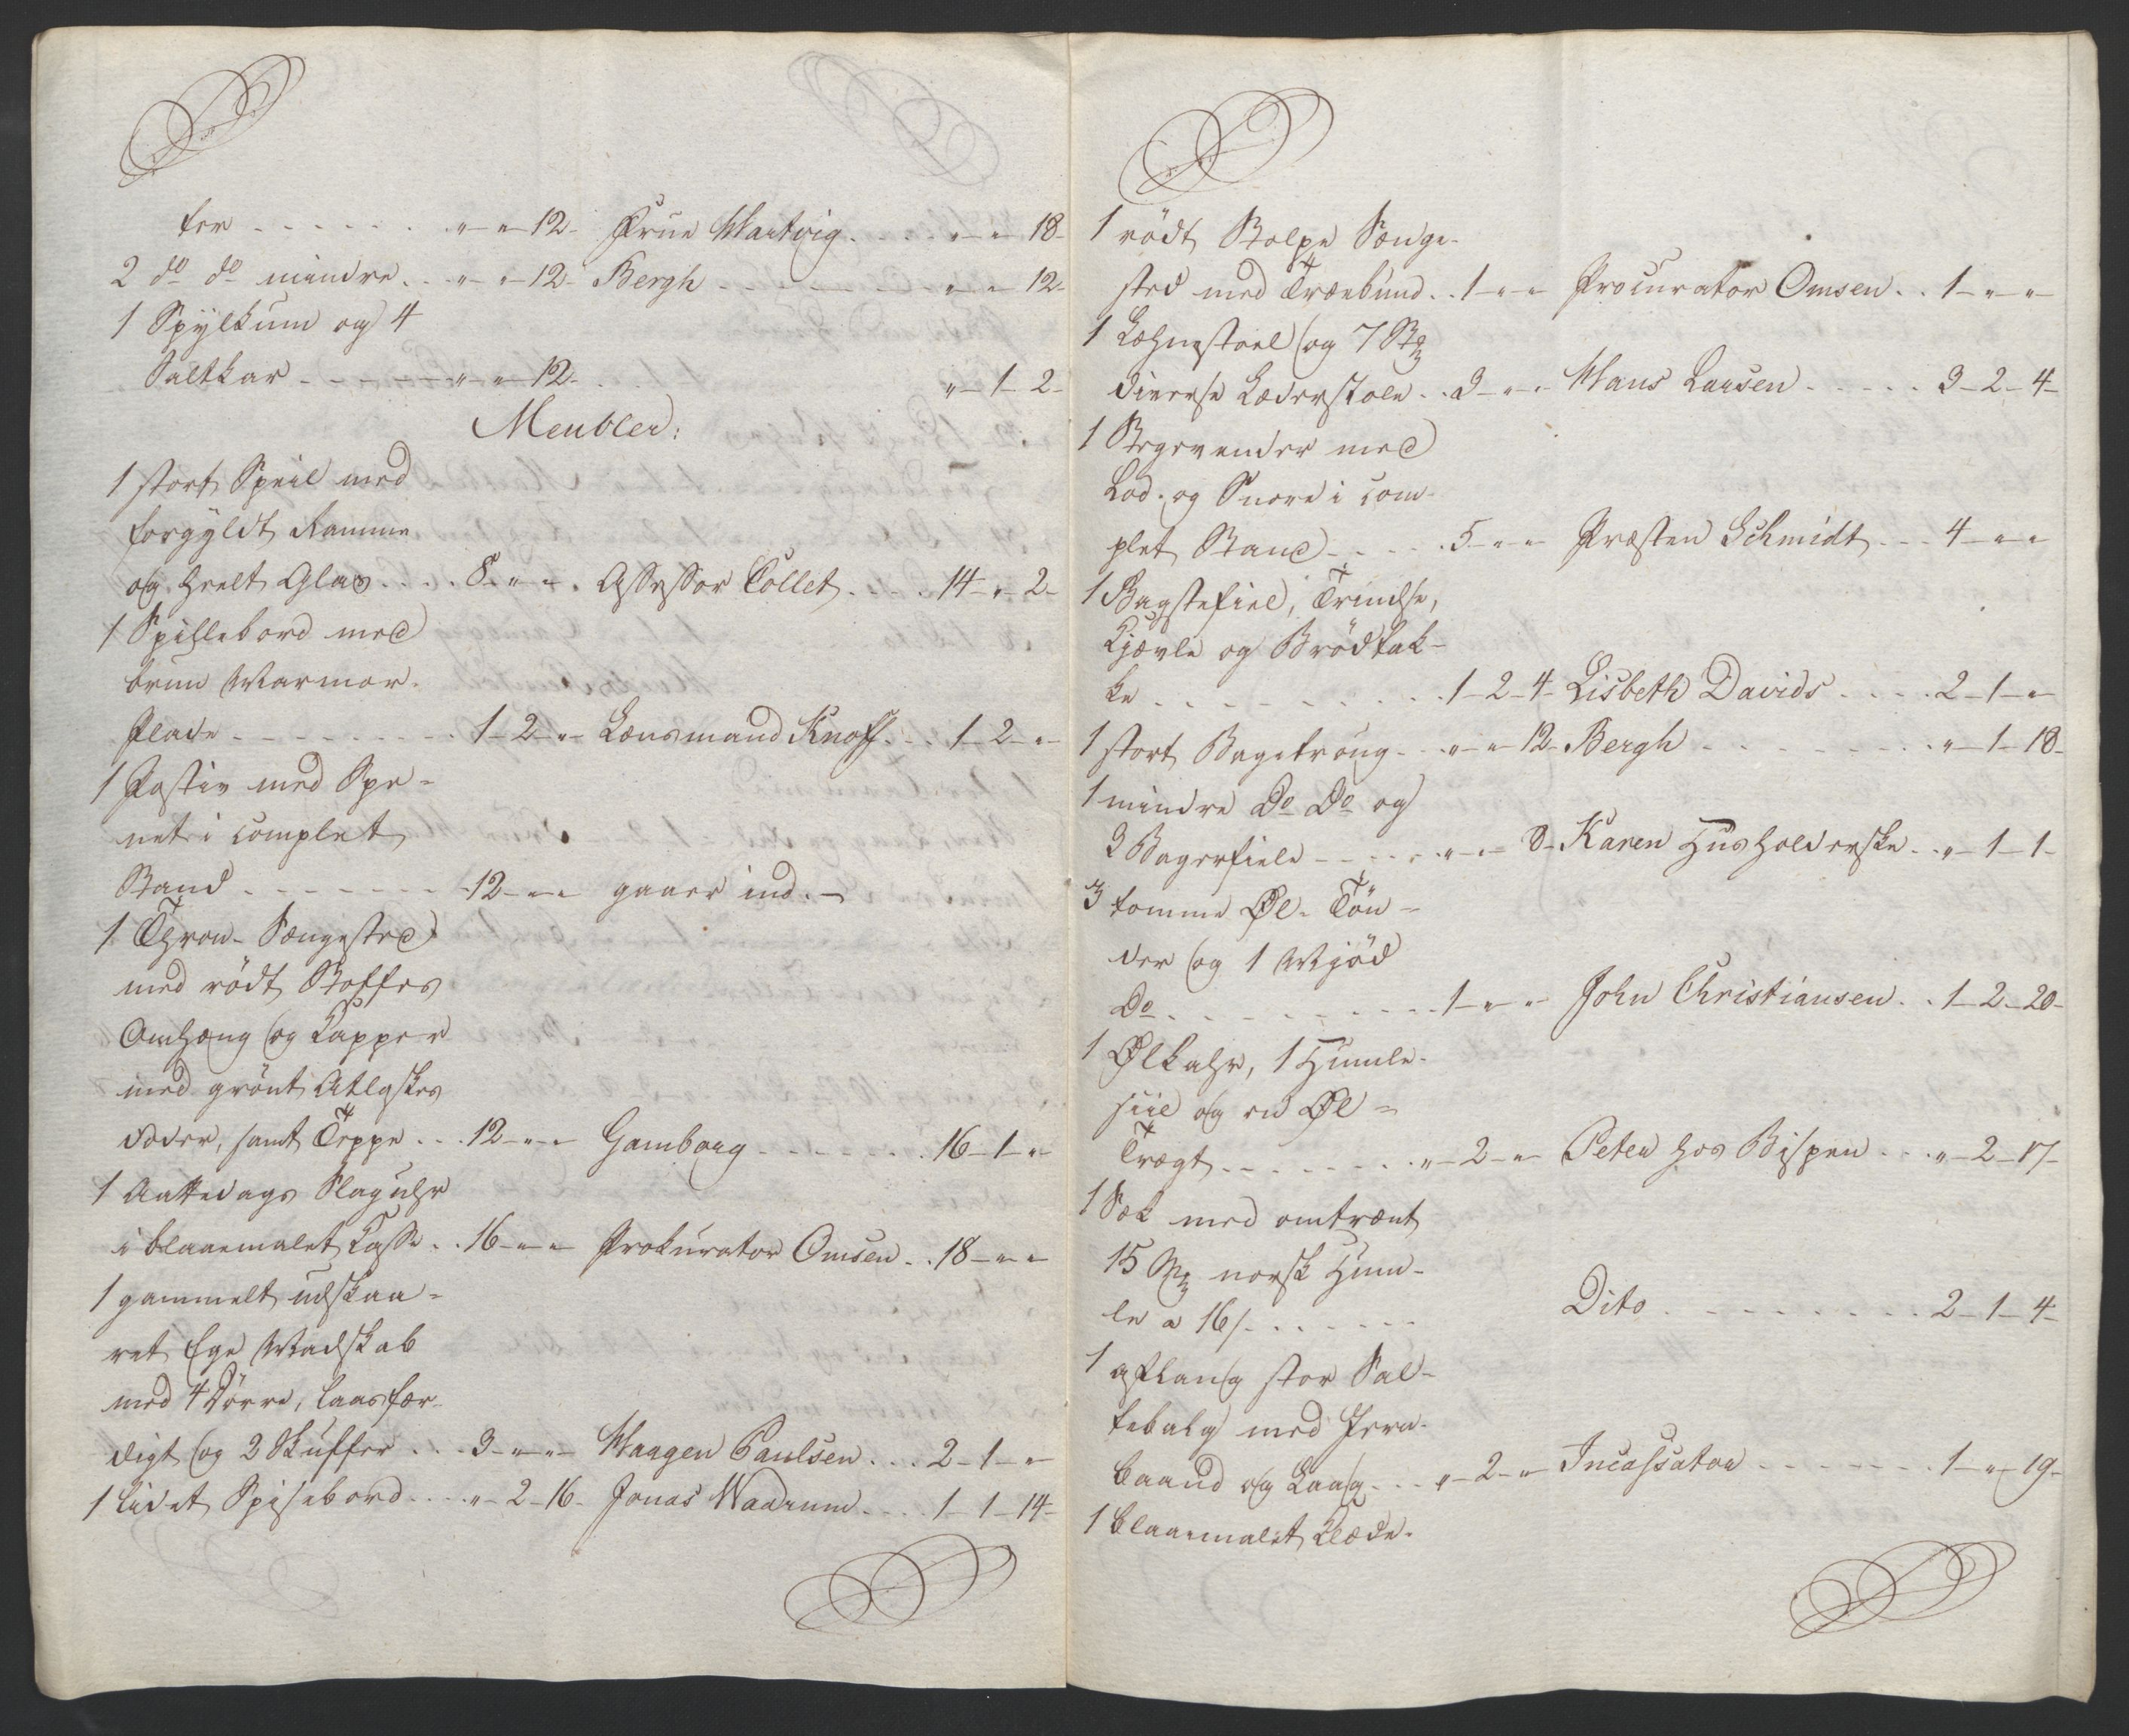 fer . . . . . . „ - „ - 12 - Frue Hartvig . . . . „ - „ - 18 -
2 do do mindre . . „ - „ - 12 - Bergh . . . . „ - „ - 12 -
1 Spÿlkum og 4
Saltkar . . . . „ - „ - 12 - . . „ - 1 - 2 -
Meubler:
1 stort Speil med
forgyldt Ramme
og heelt Glas . . . . 8 - „ - „ . Assessor Collet . . . . 14 - „ - 2 -
1 Spillebord med
bruun Marmor-
Plade . . . . . . 1 - 2 - „ - Lænsmand Knoff . . . 1 - 2 - „ -
1 Postiv med Spe-
net i complet
Stand . . . . . . 12 - „ - „ gaaer ind. -
1 Thron-Sængested
med rödt Stoffes
Omhæng og Kapper
med grönt Atlaskes
Foder, samt Teppe . . . 12 - „ - „ Gamborg . . . . . . 16 - 1 - „ -
1 Aattedags Slaguhr
i blaaemalet Casse . . 16 - „ - „ Prokurator Omsen . . 18 - „ - „ -
1 gammelt udskaa-
ret Ege Madskab
med 4 Dörre, laasfær-
digt og 2 Skuffer . . . 3 - „ - „ - Haagen Paulsen . . . 2 - 1 - „ -
1 lidet Spisebord . . . „ - 2 - 16 - Jonas Waarum . . . . 1 - 1 - 14 -
1 rödt Stolpe Senge-
sted med Træebund . . 1 - „ - „ Procurator Omsen . . 1 - „ - „ -
1 Læhnestoel og 7 Stk
diverse Læderstole . . 3 - „ - „ Hans Larsen . . . . . 3 - 2 - 4 -
1 Stegevender med
Lod og Snore i com-
plet Stand . . . . . 5 - „ - „ Præsten Schmidt . . . 4 - „ - „
1 Bagstefiel, Trindse,
Kjævle og Brödtak-
ke . . . . . . . . 1 - 2 - 4 - Lisbeth Davids . . . . 2 - 1 - „ -
1 stort Bagetroug . . „ - „ - 12 - Bergh . . . . . . . . „ - 1 - 18 -
1 mindre Do Do og
2 Bagerfiele . . . . „ - „ - 8 - Karen Husholderske . . „ - 1 - 1 -
3 tomme Øl-Tön-
der og 1 Mjöd
Do . . . . . . . . . 1 - „ - „ - John Christiansen . . 1 - 2 - 20 -
1 Ølkahr, 1 Humle-
siil og en Øl-
Trægt . . . . . . . „ - 2 - „ - Peter hos Bispen . . . „ - 2 - 17 -
1 Sæk med omtrænt
15 Mk norsk Hum-
le a 16 s . . . . . . Dito . . . . . . . . 2 - 1 - 4 -
1 aflang stor Sal-
tebalg med Jern-
baand og Laag . . . „ - 2 - „ - Incassator . . . . . . . 1 - „ - 19 -
1 blaaemalet Klæde-